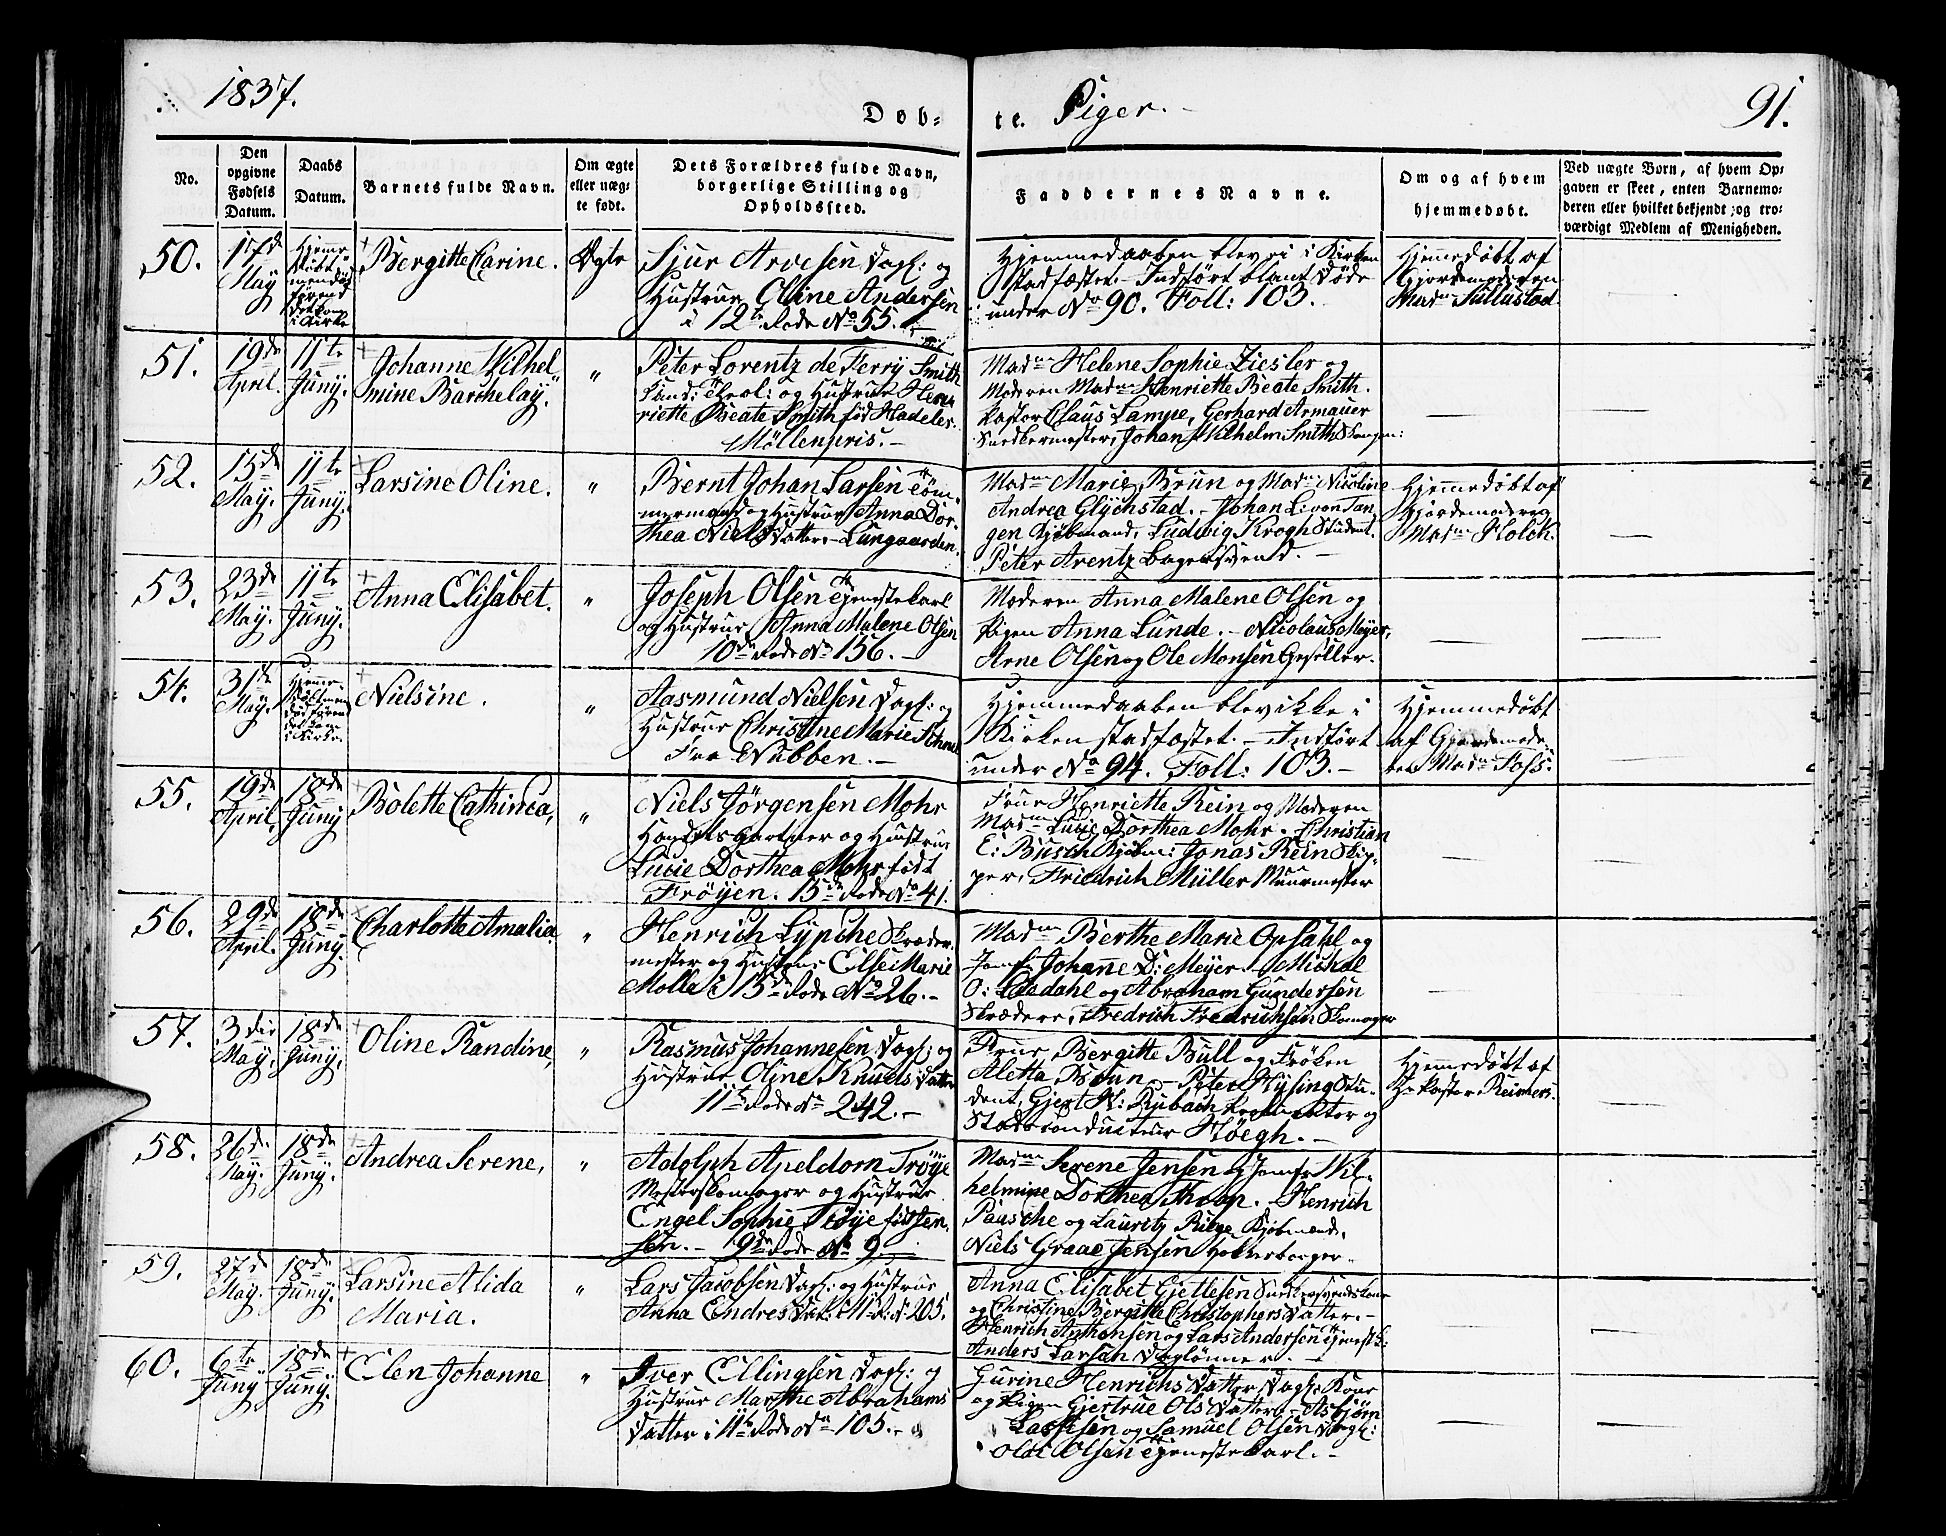 1837.
Døb-
te. Piger.-
91.
No.
Den
opgivne
Fødsels
Datum.
Daabs
Datum.
Barnets fulde Navn.
Om ægte
eller uæg-
te født.
Dets Forældres fulde Navn,
borgerlige Stilling og
Opholdssted.
Faddernes Navne.
Om og af hvem
hjemmedøbt.
Ved uægte Børn, af hvem Op-
gaven er skeet, enten Barnemo-
deren eller hvilket bekjendt og tro-
værdigt Medlem af Menigheden.
50.
17de
May
Hjemme
døbt
men død
førend
det kom
i Kirke
Bergitte Carine.
Ægte
Sjur Arvesen Dagk: og
Hustrue Oline Andersen
i 12te Rode No 55.
Hjemmedaaben blev ei i Kirken
stadfæstet.- Indført blant Døde
under No 90. Foll: 103.
Hjemmedøbt af
Gjordemoderen
Madme
51.
19de
April.
11te
Juny.
Johanne Wilhel
mine Barchelay.
"
Peter Lorentz de Ferry Smith
Cand: theol: og Hustrue Hen
riette Beate Smith fød Hadeler.
Møllenpris.-
Madme Helene Sophie Ziesler og
Moderen Madme Henriette Beate Smith.
Pastor Claus Lampe, Gerhard Armauer
Snedkermester, Johan Wilhelm Smith
52.
15de
May.
11te
Juny.
Larsine Oline.
"
Bernt Johan Larsen Tøm-
mermand og Hustrue Anna Dor-
thea Niels Datter.- Lungaarden.
Madme Marie Brun og Madme Nicoline
Andrea Glychstad.- Johan L: von Tan
gen Kjøbmand, Ludwig Krogh Student.
Peter Arentz Bagersvend.-
Hjemmedøbt af
Gjordemoderen
Madme Holck.
53.
23de
May.
11te
Juny.
Anna Elisabet.
"
Joseph Olsen Tjenestekarl
og Hustrue Anna Malene Olsen
10de Rode No 156.-
Moderen Anna Malene Olsen og
Pigen Anna Lunde.- Nicolaus Meyer,
Arne Olsen og Ole Monsen Geseller.
54.
31te
May.
Hjemme
døbt men
død føren
det kom
i Kirke.
Nielsine.
"
Aasmund Nielsen Dagk: og
Hustrue Christine Marie
Fra Nubben.-
Hjemmedaaben blev ikke i
Kirken stadfæstet.- Indført
under No 94. Foll: 103.-
Hjemmedøbt
af Gjordemode
ren Madme Foss.
55.
19de
April,
18de
Juny
Bolette Cathinca,
"
Niels Jørgensen Mohr
Handelsgartner og Hustrue
Lucie Dorthea Mohr født
Frøyen. 15de Rode No 41.
Frue Henriette Rein og Moderen
Madme Lucie Dorthea Mohr. Christian
E: Busch Kjøbm: Jonas Rein Skip-
per, Friedrich Müller Muurmester
56.
29de
April.
18de
Juny.
Charlotte Amalia.
"
Henrich Lypche Skræder
mester og Hustrue Else Marie
Molle i 15de Rode No 26.-
Madme Berthe Marie Opsahl og
Jomf: Johanne D: Meyer.- Michal
O: og Abraham Gundersen
Skrædere, Fredrich Fredrichsen Skomager
57.
3die
May.
18de
Juny.
Oline Randine,
"
Rasmus Johannesen Dagk: og
Hustrue Oline Knuds Datter
11te Rode No 242.-
Frue Bergitte Bull og Frøken
Aletta Brun.- Peter Hysing Stu-
dent, Gjert H: Rubach og
Stadsconducteur Høegh.-
Hjemmedøbt af
Hr Pastor Reimers.
58.
26de
May.
18de
Juny.
Andrea Serene,
"
Adolph Apeldorn Trøye
Mesterskomager og Hustrue
Engel Sophie Trøye født Jen-
sen.- 9de Rode No 9.
Madme Serene Jensen og Jomfr Wil-
helmine Dorthea Throp. Henrich
Pausche og Lauritz Riege Kjøbmænd,
Niels Graae Jensen Høkkerborger
59.
27de
May.
18de
Juny.
Larsine Alida
Maria.
"
Lars Jacobsen Dagk: og Hustrue
Anna Endres Datt: i 11 R: No 205.
Anna Elisabet Gjetlesen Snedkersvendskone
og Christine Bergitte Christophers Datter.-
Henrich Anthonsen og Lars Andersen Tjenestk:
Anders Larsen Daglønner.-
60.
6te
Juny
18de
Juny.
Elen Johanne
"
Iver Ellingsen Dagk: og
Hustrue Marthe Abrahams
Datter i 11te Rode No 105.-
Gurine Henrichs Datter Dagk: Kone
og Pigen Gjertrue Ols Datter.- Asbjørn
Lassesen og Samuel Olsen Dagk:
Olai Olsen Tjenestekarl.-